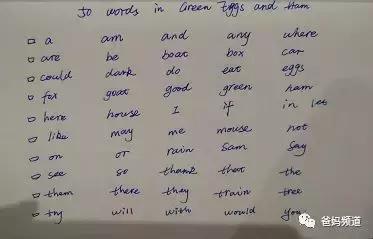 50 words in Green Eggs and Ham
a am and any where
are be boat box car
could dark do eat eggs
fox goat good green ham
here house I if in let
like may me mouse not
on or rain Sam say
see so thank that the
them there they train tree
try will with would you
爸妈频道